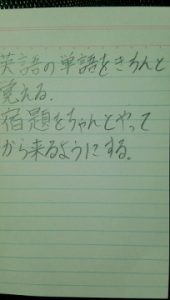 英語の単語をきちんと
覚える.
宿題をちゃんとやって
から来るようにする。